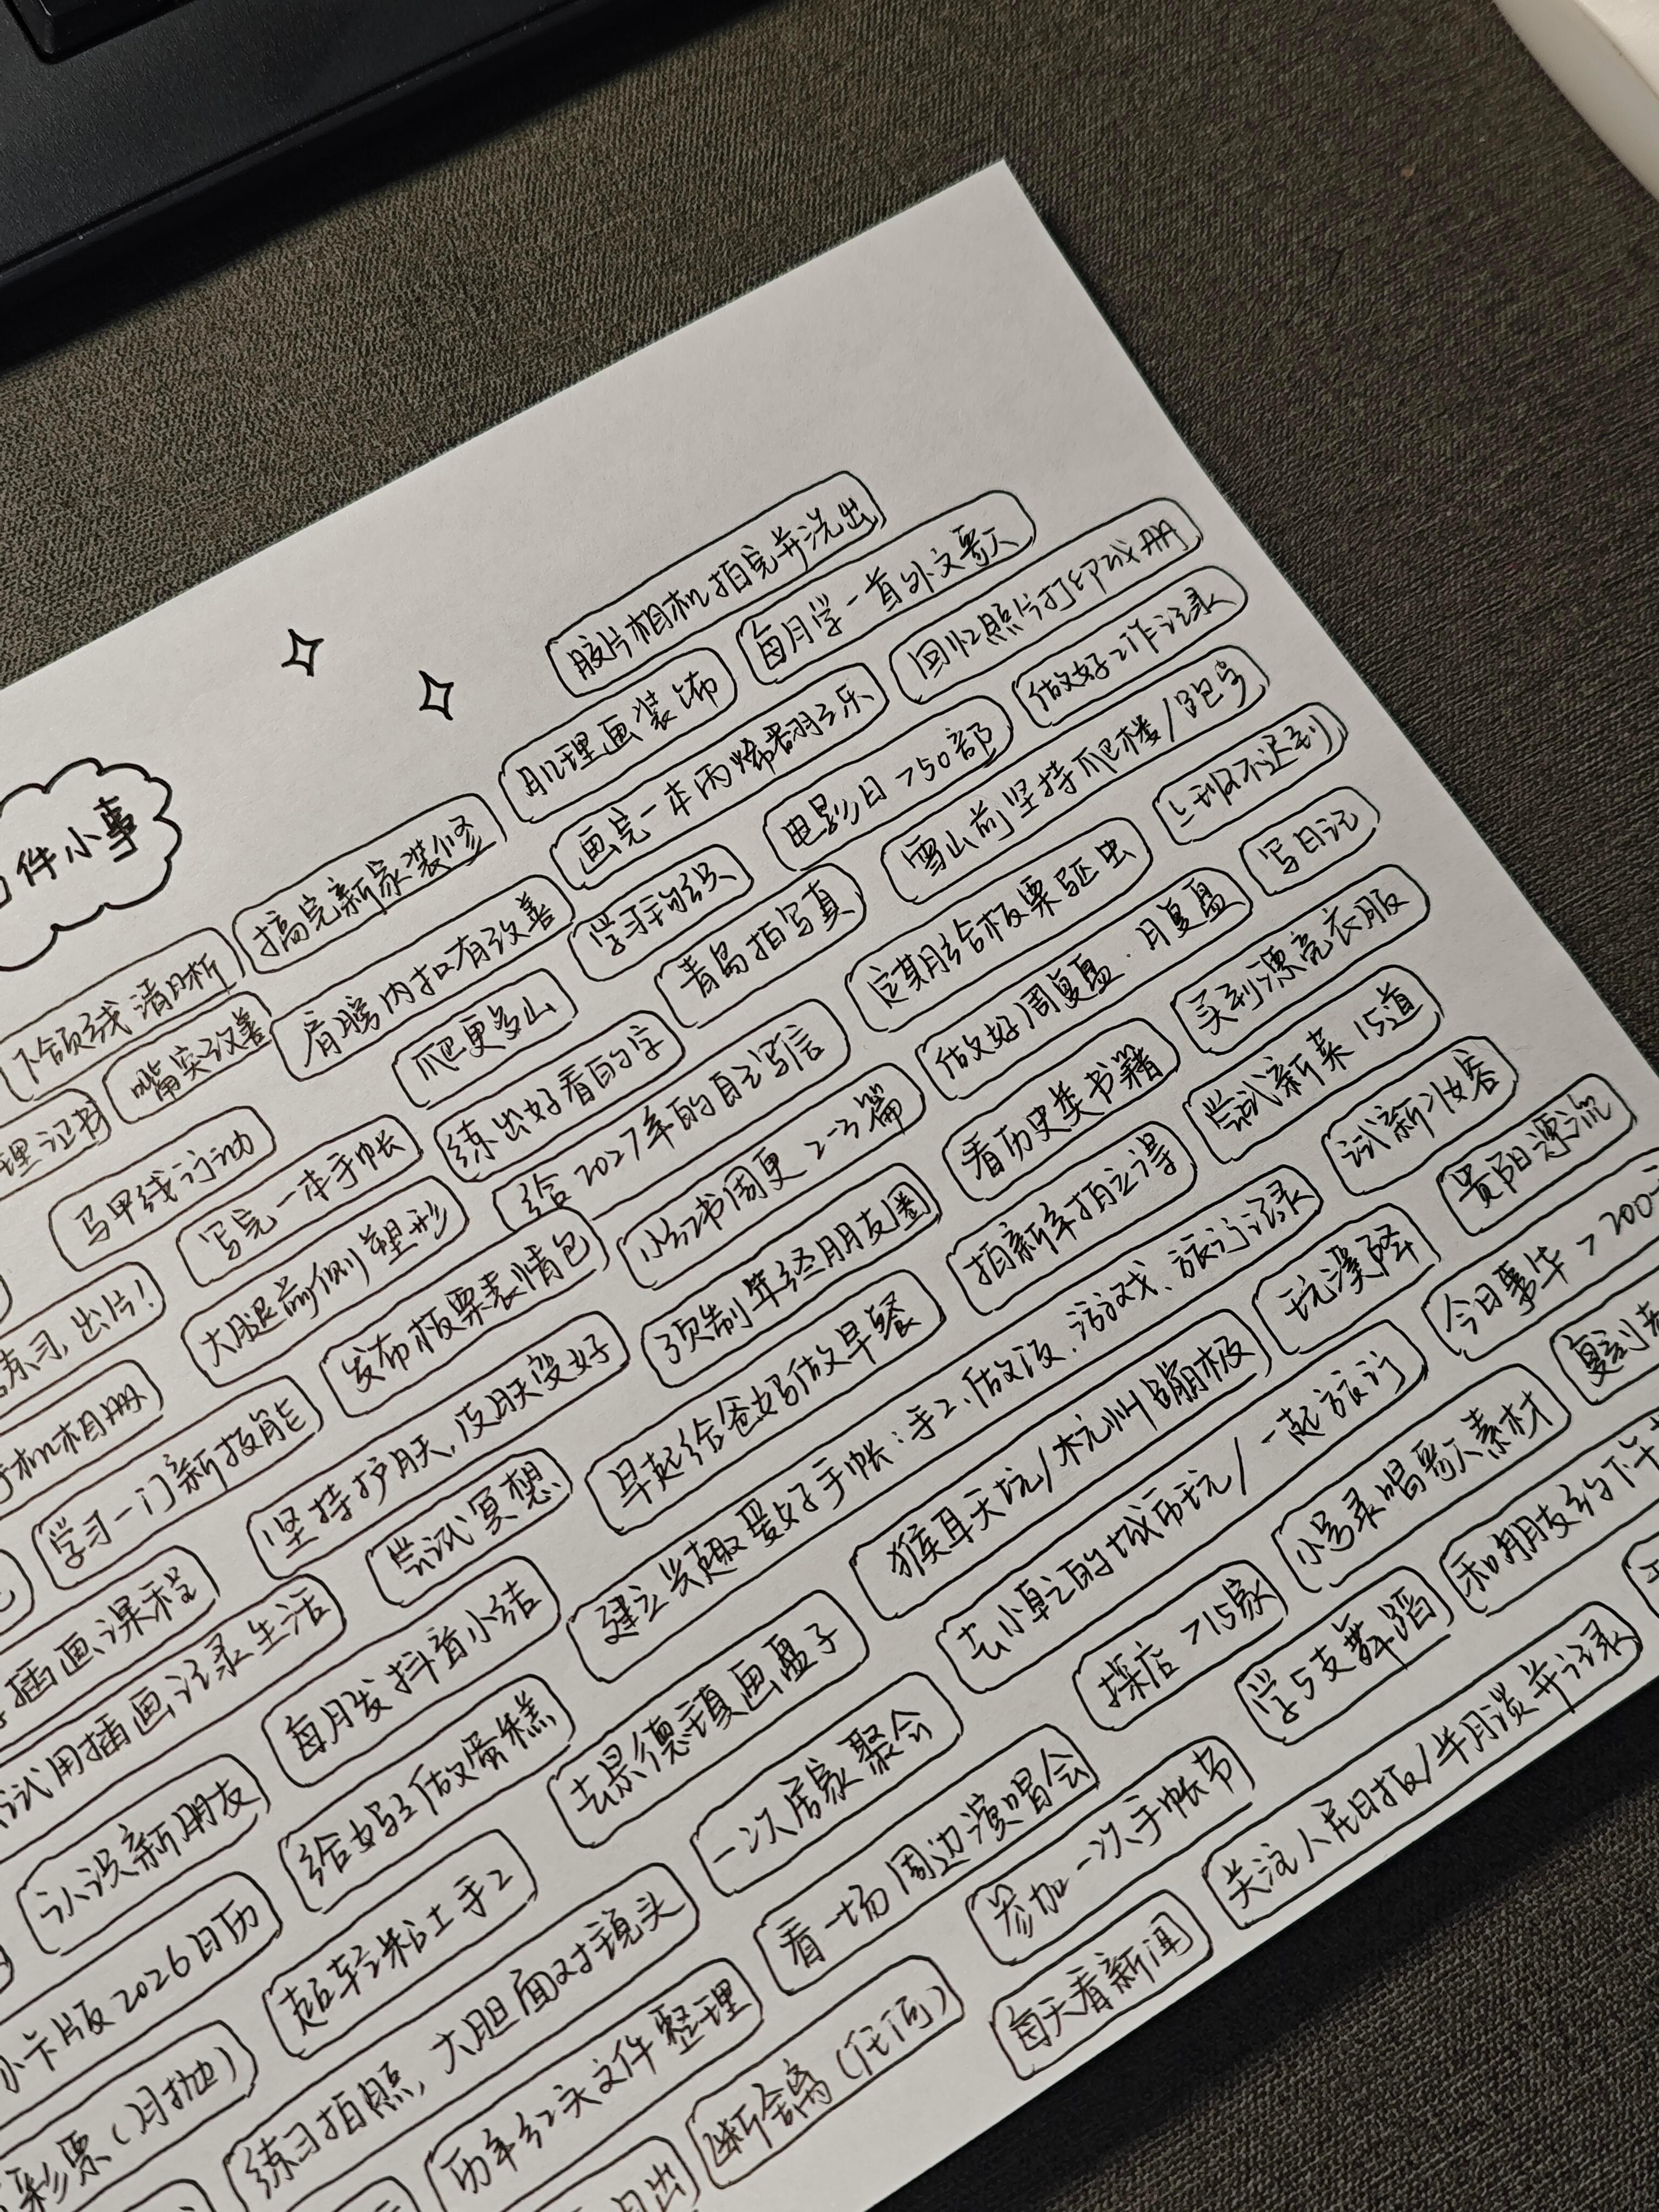 件小事
胶片相机拍完并洗出
肌理画装饰
每月学一首外文歌
搞完新家装修
画完一本丙烯翻之乐
回忆照片打印成册
下颌线清晰
肩膀内扣有改善
学习钩织
电影日>50部
做好工作记录
理证书
嘴突改善
爬更多山
青岛拍写真
雪山前坚持爬楼/跑步
上班不迟到
马甲线浮动
写完一本手帐
练出好看的字
给2027年的自己写信
定期给板栗驱虫
写日记
练习,出片!
大腿前侧塑形
发布板栗表情包
小红书周更2-3篇
做好周复盘.月复盘
买到漂亮衣服
手机相册
学习一门新技能
坚持护肤,皮肤变好
预制年终朋友圈
看历史类书籍
尝试新菜15道
插画课程
尝试冥想
早起给爸妈做早餐
拍新年拍立得
试新妆容
试用插画记录生活
每月发抖音小结
建立兴趣爱好手帐:手工、做饭、游戏、旅行记录
玩溪降
贵阳漂流
认识新朋友
给妈妈做蛋糕
去景德镇画盘子
猴耳天坑/杭州蹦极
今日事毕>200
小卡片版2026日历
超轻粘土手工
一次居家聚会
去小乾的城市玩/一起旅行
小号录唱歌素材
彩票(月抛)
练习拍照,大胆面对镜头
看一场周边演唱会
探店>15家
和朋友约下午
历年红头文件整理
参加一次手帐节
学5支舞蹈
断舍离(任何)
每天看新闻
关注人民日报/半月谈并记录
日出